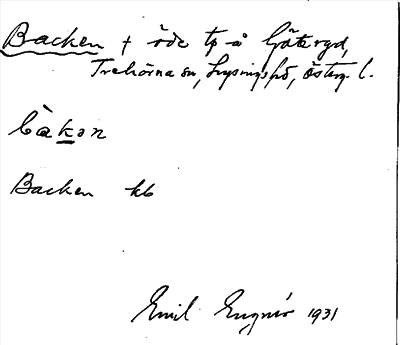 Backen + öde tp å Göteryd,
Trehörna sn, Lysings hd, Österg. l.
bàkan
Backen kb
Emil Engnér 1931